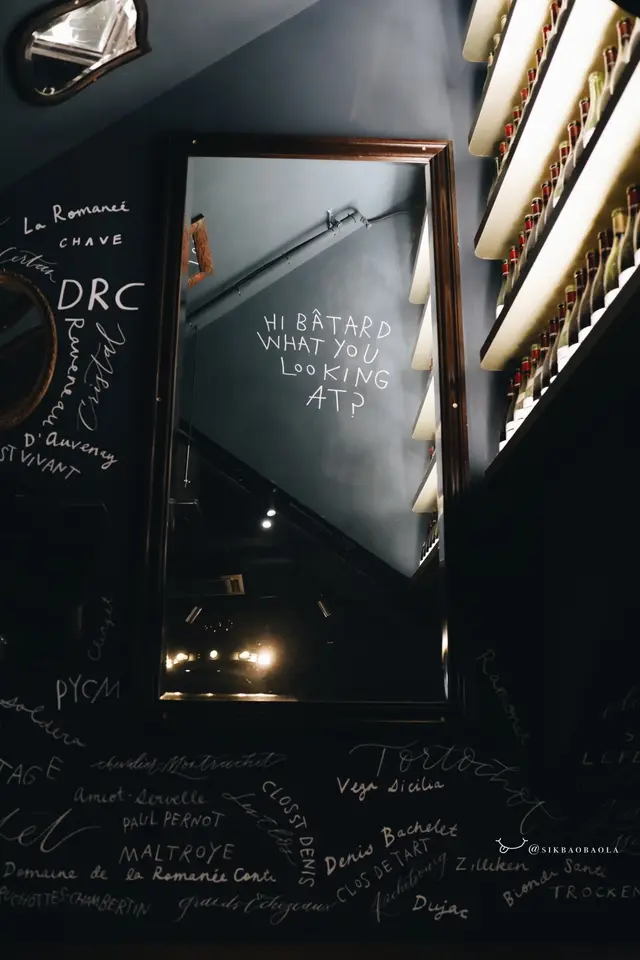 La Romaneé
CHAVE
DRC
Raveneau
Cristal
D'Auvenay
ST VIVANT
HI BÂTARD
WHAT YOU
LOOKING
AT?
PYCM
Soldera
TAGE
chevalier Montrachet
Amiot-Servelle
PAUL PERNOT
MALTROYE
Domaine de la Romaneé Conti
RUCHOTTES-CHAMBERTIN
grands Echezeaux
CLOS ST DENIS
Vega Sicilia
Denis Bachelet
CLOS DE TART
Richebourg
Dujac
Zilliken
Biondi Santi
TROCKEN
@SIKBAOBAOLA